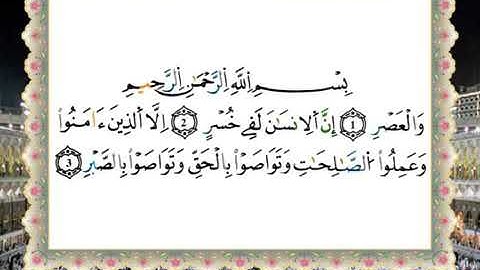 بِسْمِ اِللَّهِ اِلرَّحْمَٰنِ اِلرَّحِيمِ
وَالْعَصْرِ ۝1 إِنَّ اَلِانسَٰنَ لَفِے خُسْرٍ ۝2 اِلَّا اَلذِينَ ءَامَنُواْ
وَعَمِلُواْ اُلصَّٰلِحَٰتِ وَتَوَاصَوْاْ بِالْحَقِّ وَتَوَاصَوْاْ بِالصَّبْرِ ۝3